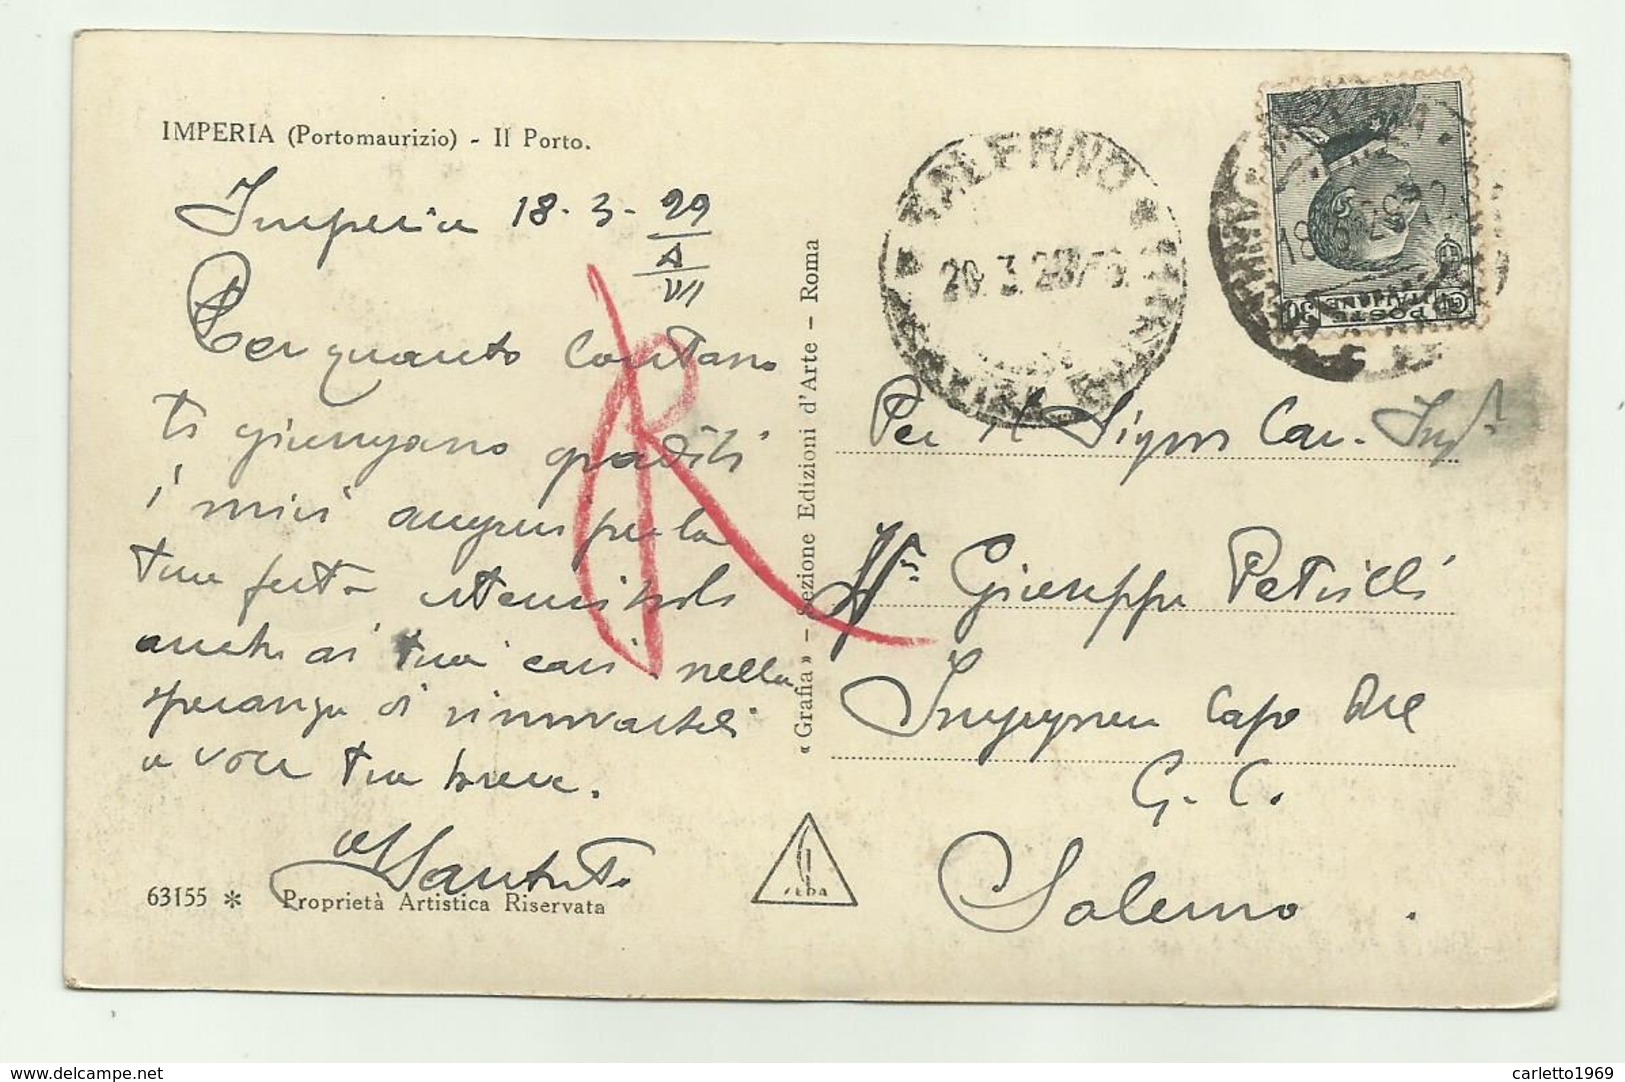 IMPERIA (Portomaurizio) - Il Porto.
Imperia 18-3-29
A
VII
Per quanto lontano
ti giungano graditi
i miei auguri per la
tua festa estensibili
anche ai tuoi cari nella
speranza di rinnovarteli
a voce tra breve.
63155 * Proprietà Artistica Riservata
« Grafia » - Sezione Edizioni d'Arte - Roma
SALERNO
20.3.29
POSTE
ITALIANE
30
Per il Signor Cav. Ing.
Giuseppe Petrilli
Ingegnere Capo del
G. C.
Salerno.
R
carletto1969
www.delcampe.net